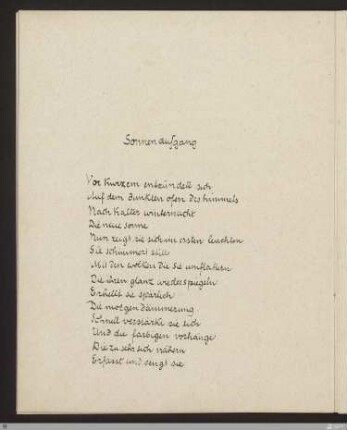 Sonnenaufgang
Vor kurzem entzündete sich
Auf dem dunklen ofen des himmels
Nach kalter winternacht
Die neue sonne
Nun zeigt sie sich im ersten leuchten
Sie schimmert still
Mit den wolken die sie umflattern
Die ihren glanz wiederspiegeln
Erhellt sie spärlich
Die morgendämmerung
Schnell verstärkt sie sich
Und die farbigen vorhänge
Die zu sehr sich nähern
Erfasst und sengt sie